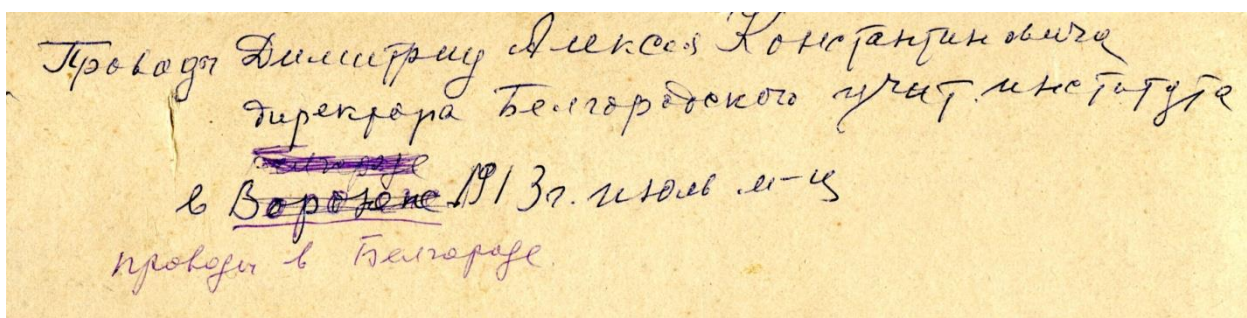 Проводы Димитриу Алексея Константиновича
директора Белгородского учит. института
в Воронеже 1913 г. июль м-ц
проводы в Белгороде